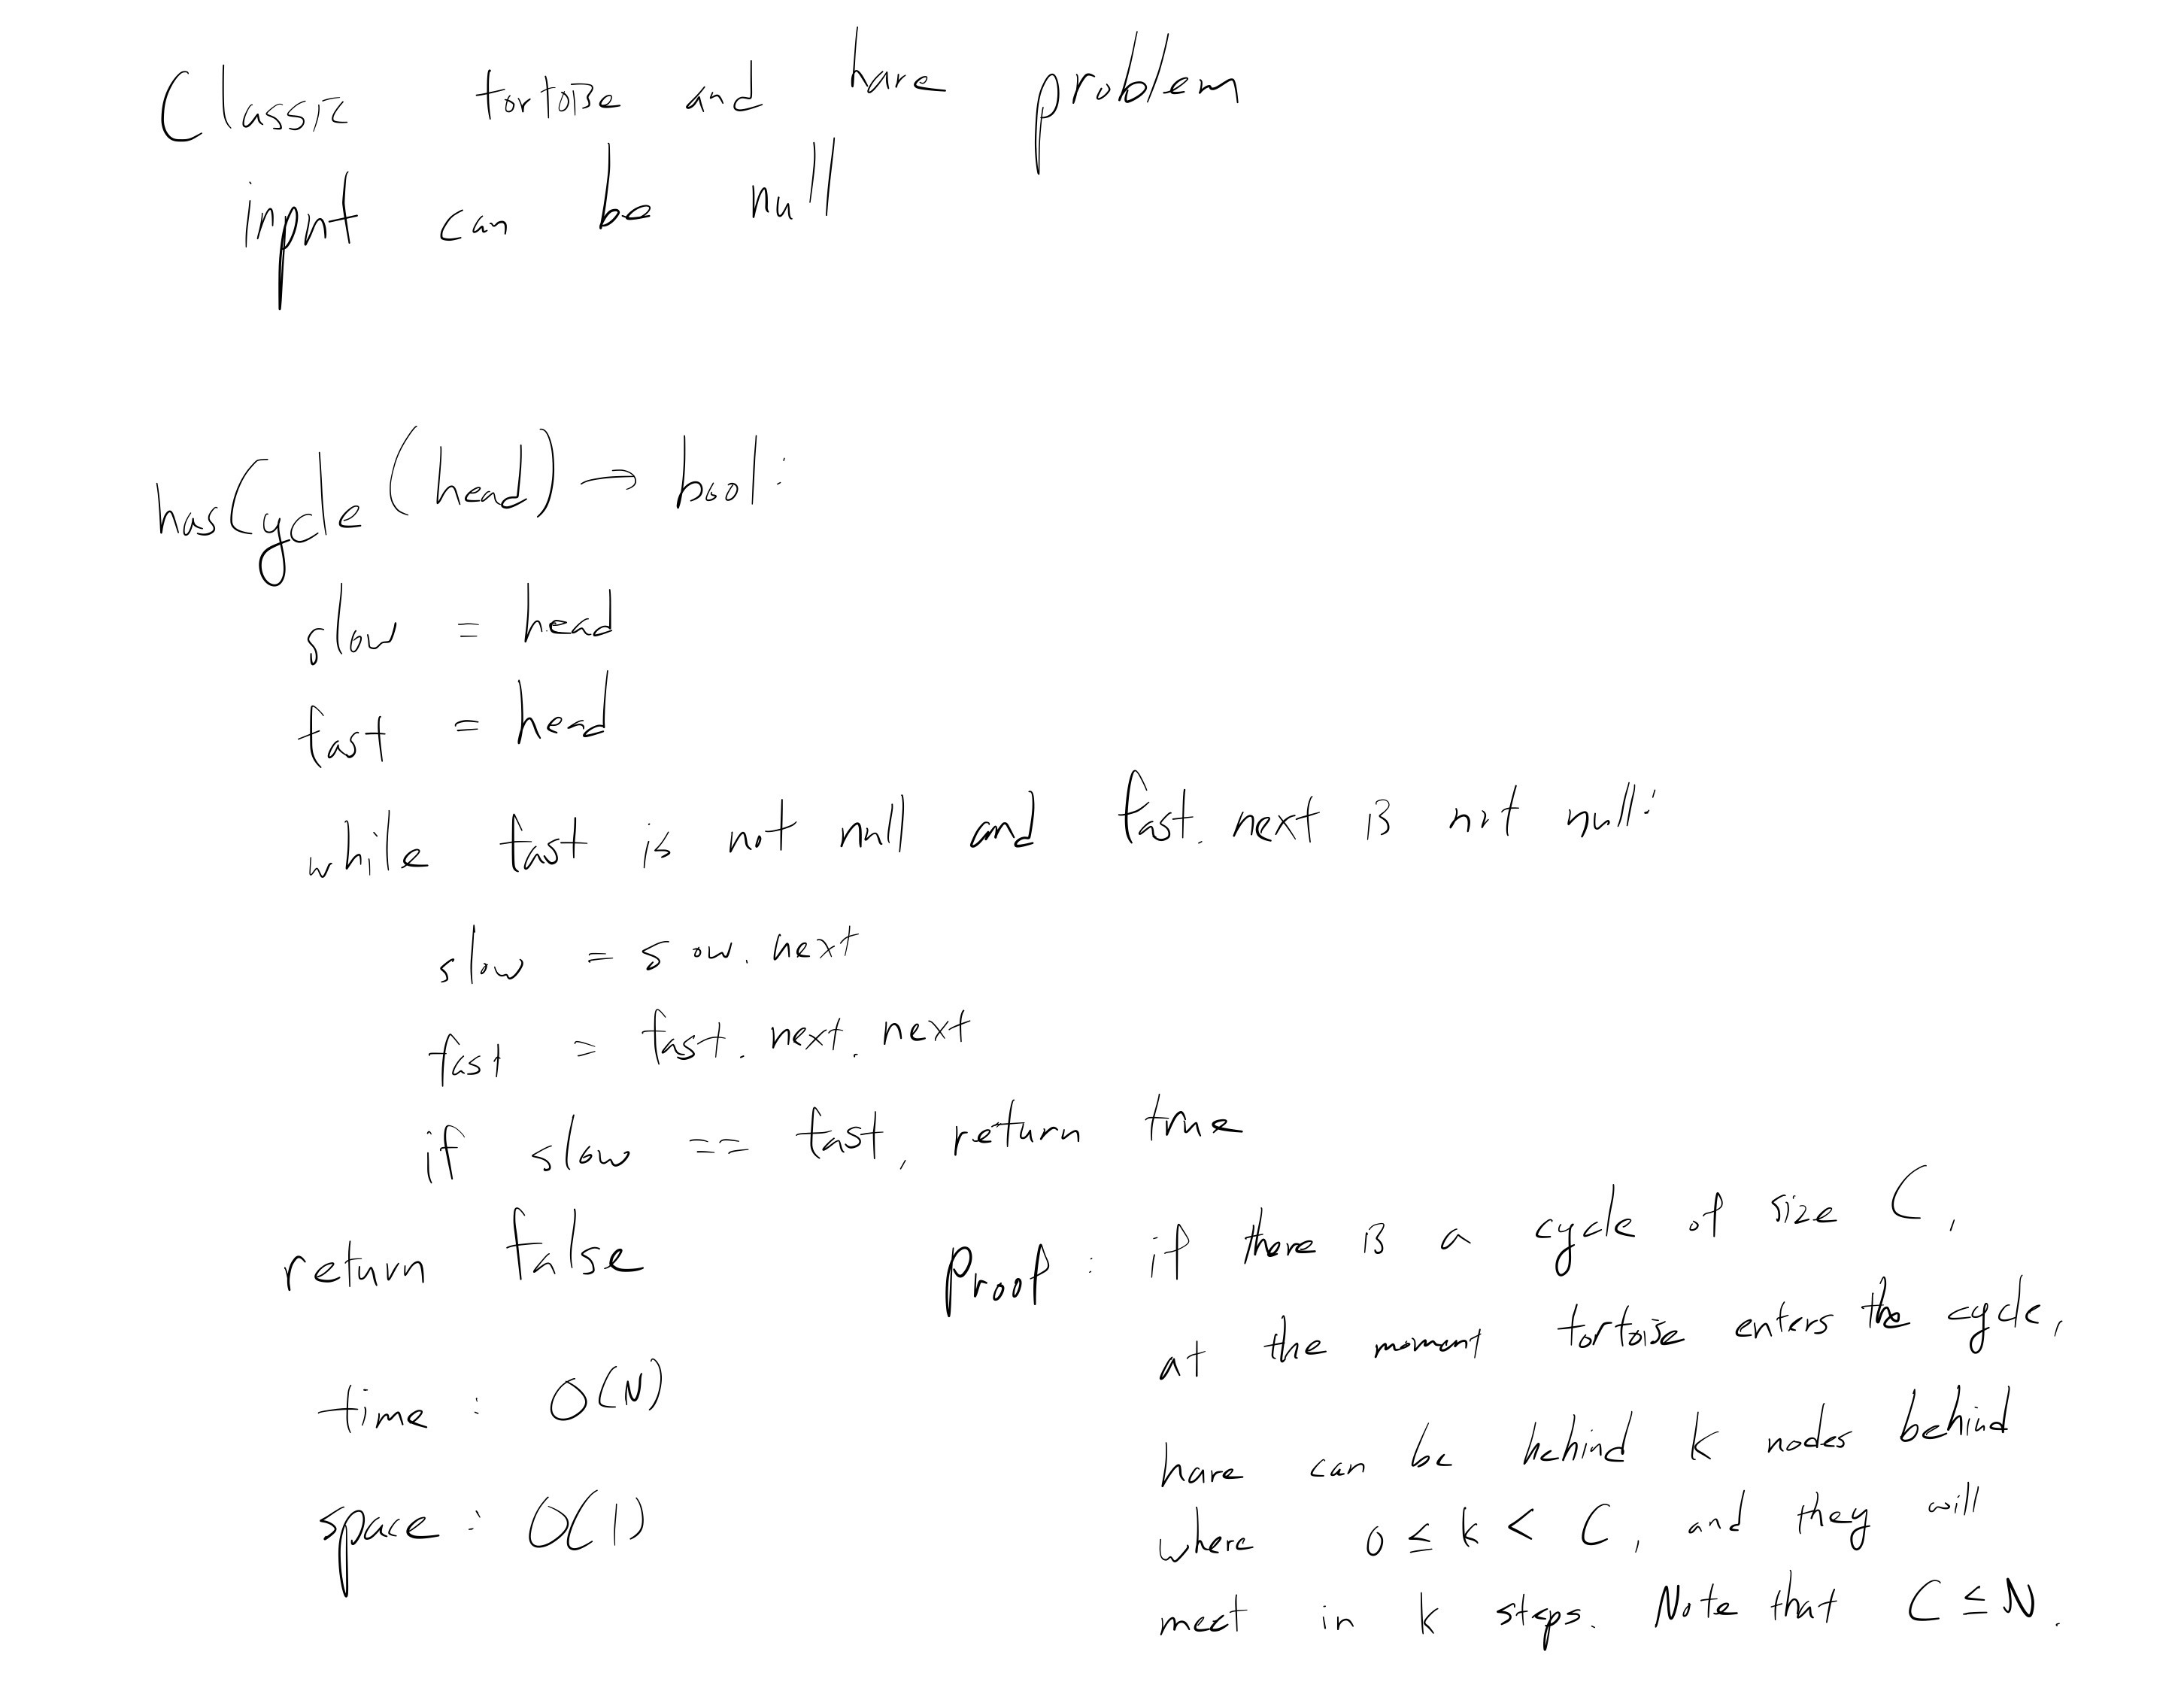 Classic tortoise and hare problem
input can be null
hasCycle(head) → bool:
slow = head
fast = head
while fast is not null and fast.next is not null:
slow = s ow.next
fast = fast.next.next
if slow == fast, return true
return false
time : O(N)
space : O(1)
Proof : if there is a cycle of size C,
at the moment tortoise enters the cycle,
hare can be behind k nodes behind
where 0 ≤ k < C, and they will
meet in k steps. Note that C ≤ N.